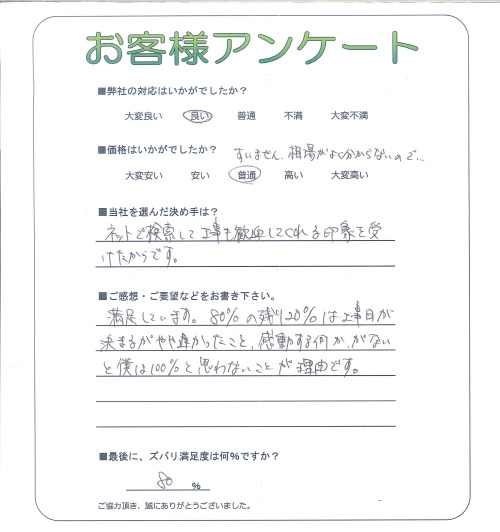 お客様アンケート
■弊社の対応はいかがでしたか？
大変良い 良い 普通 不満 大変不満
■価格はいかがでしたか？ すいません、相場がよく分からないので…
大変安い 安い 普通 高い 大変高い
■当社を選んだ決め手は？
ネットで検索して工事を歓迎してくれる印象を受
けたからです。
■ご感想・ご要望などをお書き下さい。
満足しています。80%の残り20%は工事日が
決まるがやや遅かったこと、感動する何か、がない
と僕は100%と思わないことが理由です。
■最後に、ズバリ満足度は何%ですか？
80 %
ご協力頂き、誠にありがとうございました。